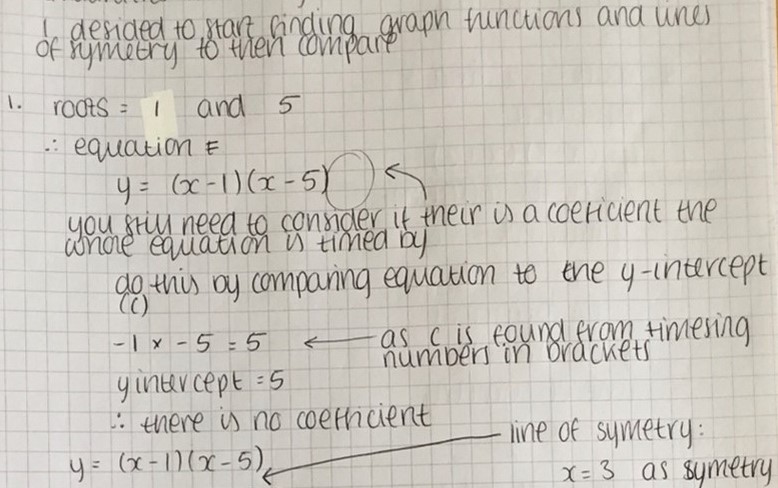 I desided to start finding graph functions and lines
of symetry to then compare
1. roots = 1 and 5
∴ equation =
y = (x-1)(x-5)
you still need to consider if their is a coeficient the
whole equation is timed by
do this by comparing equation to the y-intercept
(c)
-1 x -5 = 5 ← as c is found from timesing
numbers in brackets
y intercept = 5
∴ there is no coefficient
line of symetry:
y = (x-1)(x-5)
x = 3 as symetry